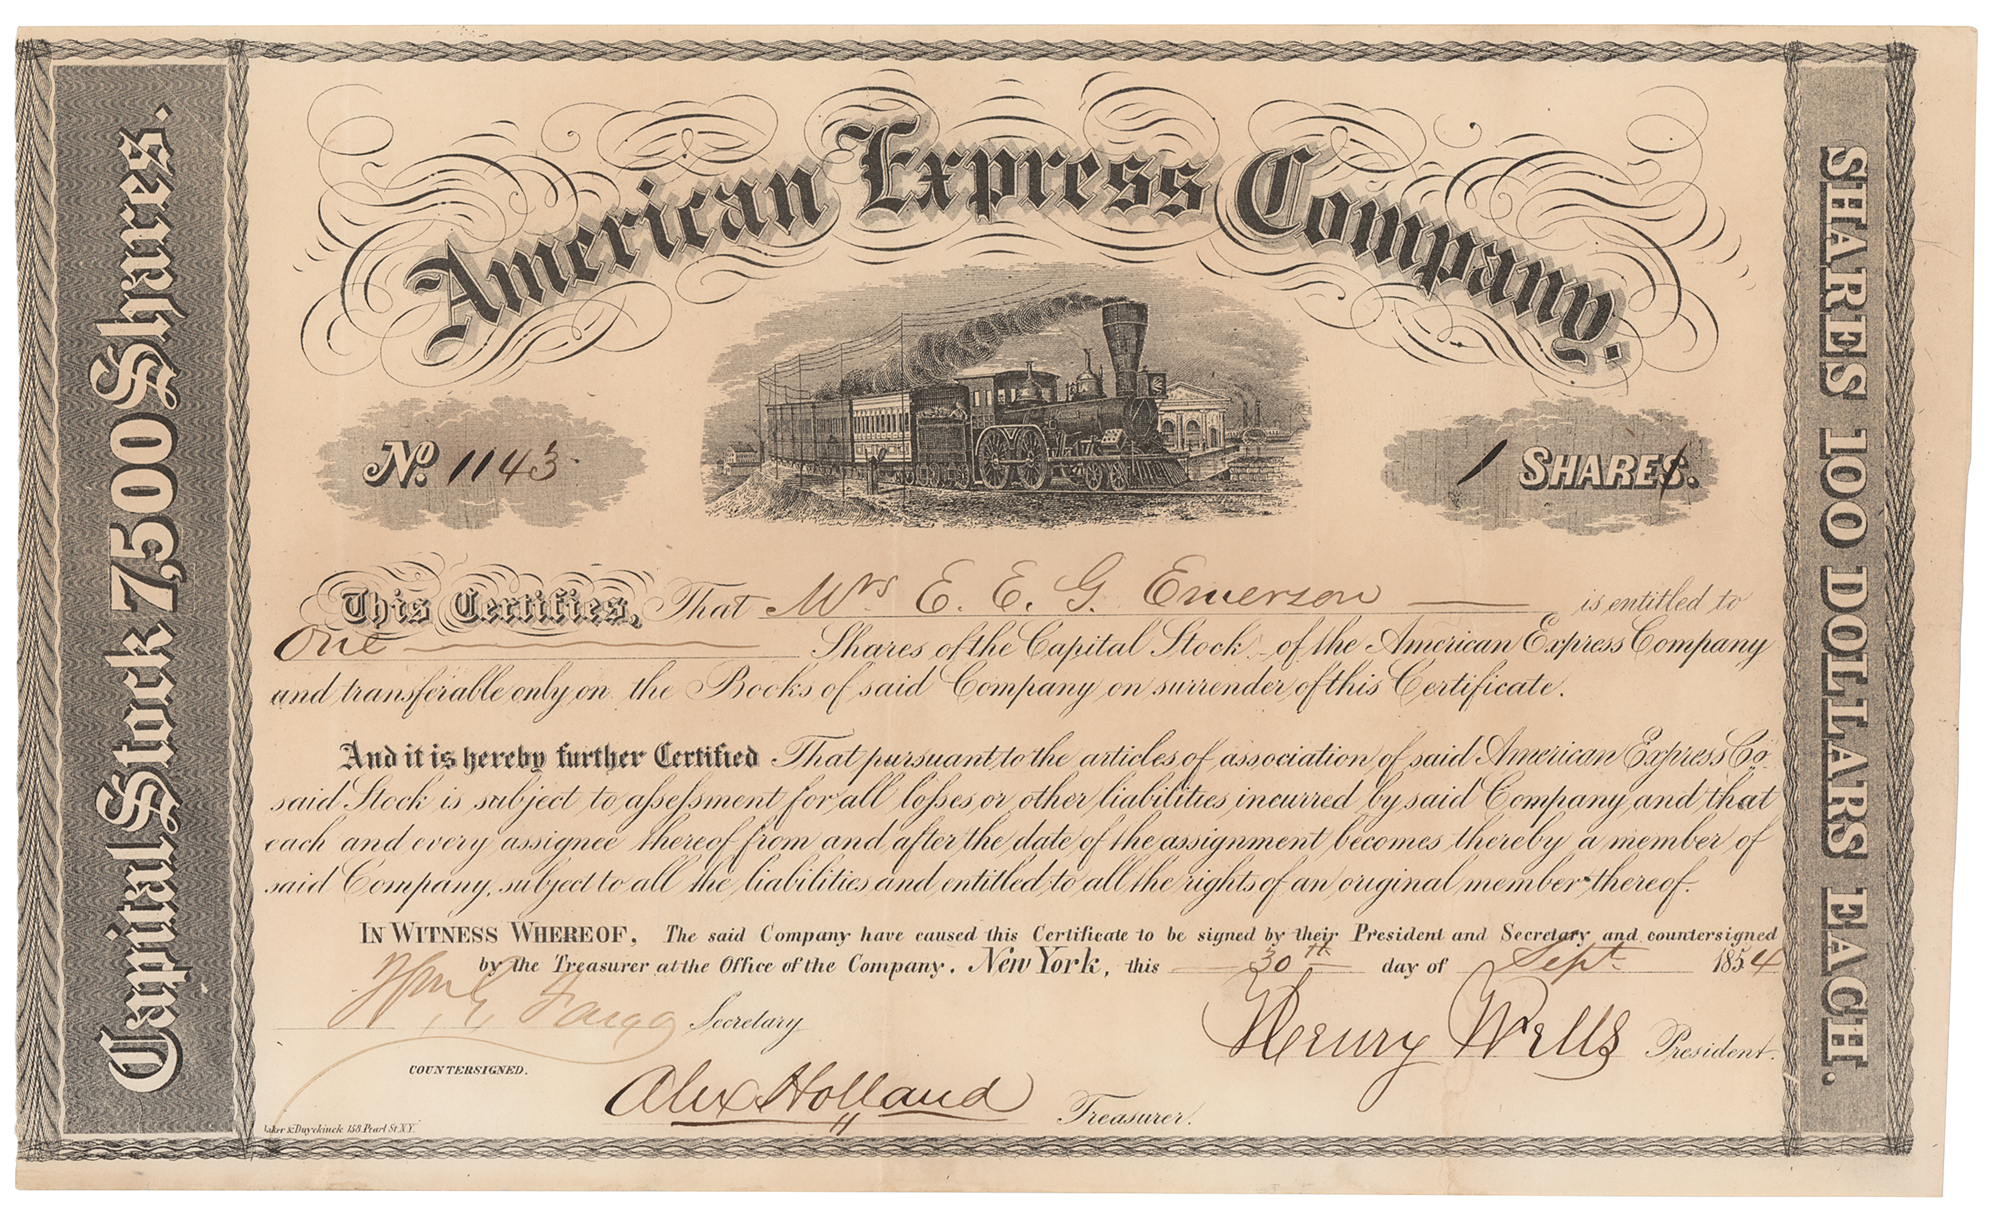 American Express Company.
Capital Stock 7,500 Shares.
SHARES 100 DOLLARS EACH.
No. 1143
1 SHARES.
This Certifies, That Mrs E. E. G. Emerson is entitled to
One Shares of the Capital Stock of the American Express Company
and transferable only on the Books of said Company on surrender of this Certificate.
And it is hereby further Certified That pursuant to the articles of association of said American Express Co.
said Stock is subject to assessment for all losses or other liabilities incurred by said Company and that
each and every assignee thereof from and after the date of the assignment becomes thereby a member of
said Company, subject to all the liabilities and entitled to all the rights of an original member thereof.
IN WITNESS WHEREOF, The said Company have caused this Certificate to be signed by their President and Secretary and countersigned
by the Treasurer at the Office of the Company. New York, this 30th day of Sept. 1854
Wm G. Fargo Secretary
Henry Wells President.
COUNTERSIGNED.
Alex Holland Treasurer.
& Duyckinck 158 Pearl St N.Y.